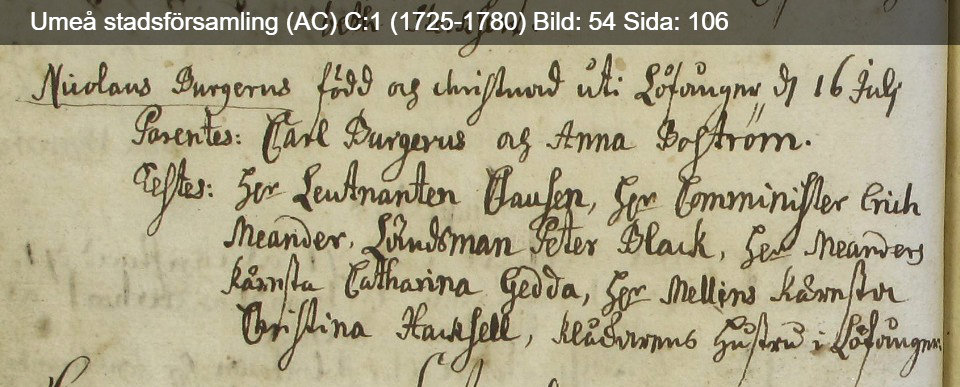 Umeå stadsförsamling (AC) C:1 (1725-1780) Bild: 54 Sida: 106
Nicolaus Burgerus född och christnad uti Löfånger d 16 Julj
Parentes: Carl Burgerus och Anna Boström.
Testes: Hr Leutnanten Clausen, Hr Comminister Erich
Meander, Ländsman Peter Black, Hr Meanders
Kärnsta Catharina Gedda, Hr Mellins Kärnsta
Christina Hacksell, Klåckarens Hustru i Löfånger.